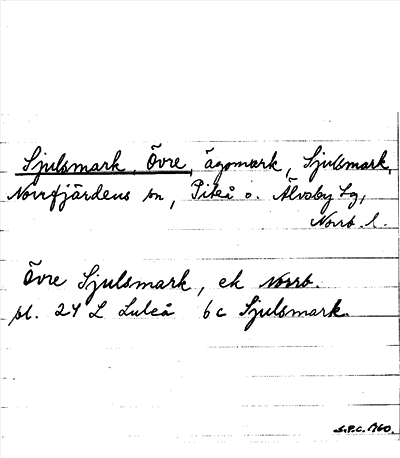 Sjulsmark, Övre, ägomark, Sjulsmark,
Norrfjärdens sn, Piteå o. Älvsby tg,
Norrb. l.
Övre Sjulsmark, ek Norrb.
bl. 24 L Luleå 6c Sjulsmark.
S.P.C. 1960.